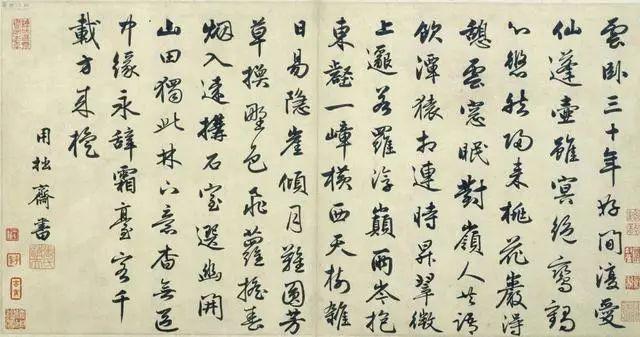 雲卧三十年好閒復愛
仙蓬壺雖冥絕鸞鶴
心悠然歸來桃花巖得
憩雲窓眠對嶺人共語
飲潭猿相連時昇翠微
上邈若羅浮巔兩岑抱
東壑一嶂橫西天樹雜
日易隱崖傾月難圓芳
草換野色飛蘿搖春
烟入遠構石室選幽開
山田獨此林下意杳無區
中緣永辭霜臺客千
載方來旋
用拙齋書